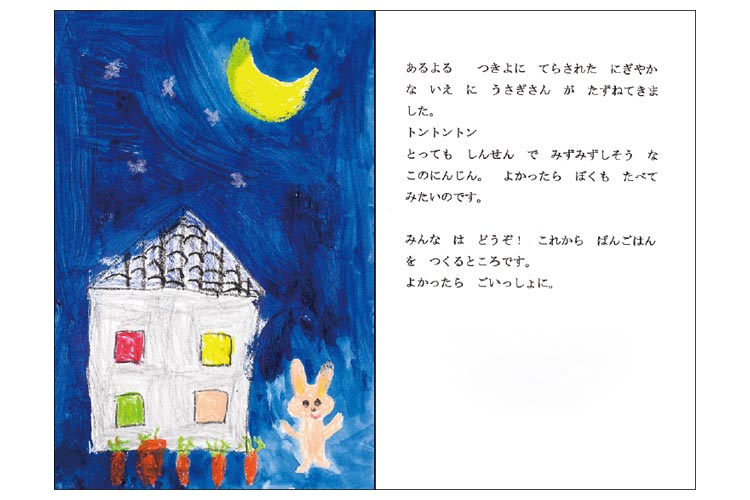 あるよる　　つきよに　てらされた　にぎやか
な　いえ　に　うさぎさん　が　たずねてきま
した。
トントントン
とっても　しんせん　で　みずみずしそう　な
このにんじん。　よかったら　ぼくも　たべて
みたいのです。
みんな　は　どうぞ！　これから　ばんごはん
を　つくるところです。
よかったら　ごいっしょに。